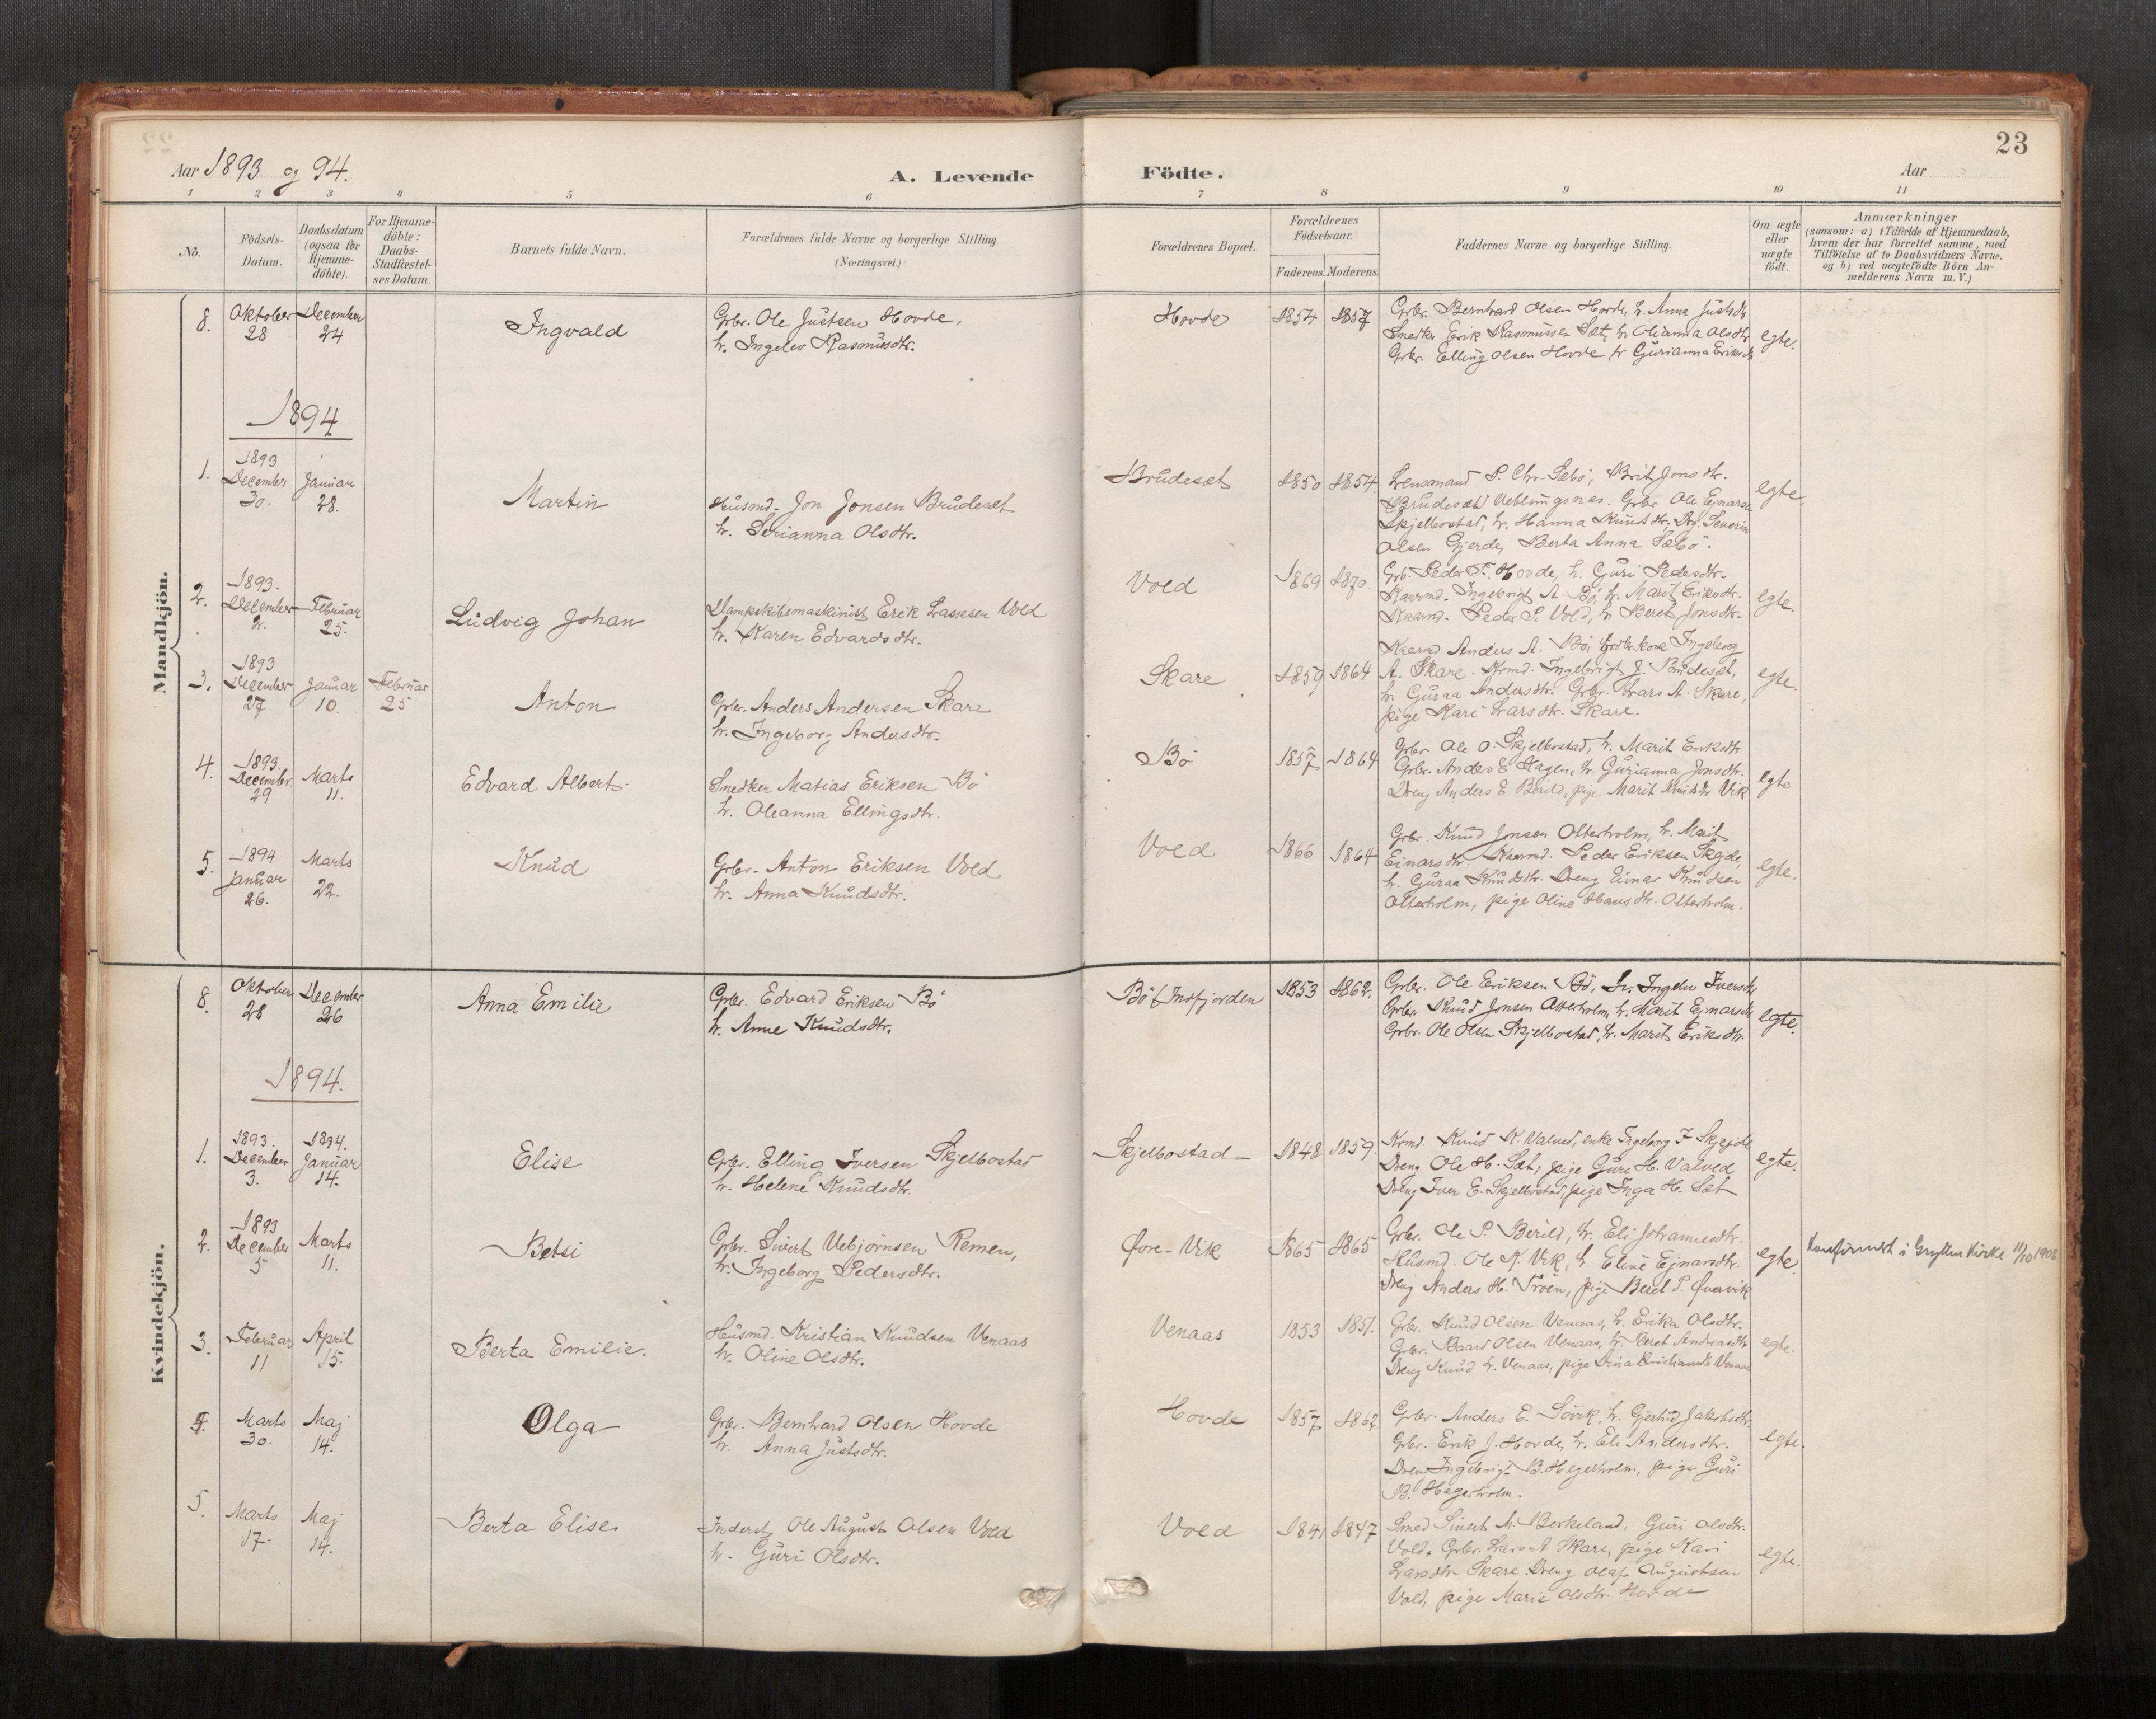 23
Aar 1893 og 94.
A. Levende Födte.
Aar
1 2 3 4 5 6 7 8 9 10 11
No.
Födsels-Datum.
Daabsdatum (ogsaa for Hjemme-döbte).
For Hjemme-döbte: Daabs-Stadfæstel-ses Datum.
Barnets fulde Navn.
Forældrenes fulde Navne og borgerlige Stilling.
(Næringsvei.)
Forældrenes Bopæl.
Forældrenes Födselsaar.
Faderens. Moderens.
Faddernes Navne og borgerlige Stilling.
Om ægte eller uægte födt.
Anmærkninger
(saasom: a) i Tilfælde af Hjemmedaab,
hvem der har forrettet samme, med
Tilföielse af to Daabsvidners Navne.
og b) ved uægtefödte Börn An-
melderens Navn m.V.)
Mandkjön.
8. Oktober 28 December 24 Ingvald
Grbr. Ole Justsen Hovde,
h. Ingelev Rasmusdtr.
Hovde 1854 1857
Grbr. Bernhard Olsen Hovde, h. Anna Justsdtr
Smedker Erik Rasmussen Sæt, h. Olianna Olsdtr
Grbr. Elling Olsen Hovde h. Gurianna Eriksdtr
egte.
1894
1. 1893 December 30. Januar 28. Martin
Husmd. Jon Jonsen Brudeset
h. Serianna Olsdtr.
Brudesæt 1850 1854.
Lensmand P. Chr. Sæbö, Brit Jonsdtr.
Brudesæt Veblungsnes. Grbr. Ole Ejnarsen
Skjelbostad, h. Hanna Knudsdtr. Drg. Severin
Olsen Gjerde, Berta Anna Sæbö.
egte.
2. 1893. December 2. Februar 25. Ludvig Johan
Dampskibsmaskinist Erik Lassesen Vold
h. Karen Edvardsdtr.
Vold 1869 1870.
Grb. Peder T. Hovde, h. Guri Pedersdtr.
Kaarmd. Ingebrigt A. Bö, h. Marit Eriksdtr.
Kaarmd. Peder P. Vold, h. Beret Jonsdtr.
egte.
3. 1893 December 27 Januar 10. Februar 25 Anton
Grbr. Anders Andersen Skare
h. Ingeborg Andersdtr.
Skare 1859 1864
Kaarmd Anders A. Bö, Grdbr.kone Ingeborg
A. Skare. Krmd. Ingebrigt J. Brudesæt,
h. Guraa Andersdtr. Grbr. Lars A. Skare,
pige Kari Larsdtr. Skare.
egte.
4. 1893. December 29 Marts 11. Edvard Albert
Smedker Matias Eriksen Bö
h. Oleanna Ellingsdtr.
Bö 1857 1864
Grbr. Ole O. Skjelbostad, h. Marit Eriksdtr
Grbr. Anders E Hagen, h. Gurianna Jonsdtr.
Dreng Anders E Berild, pige Marit Knudsdtr Vik
egte
5. 1894 Januar 26. Marts 22. Knud
Grbr. Anton Eriksen Vold
h. Anna Knudsdtr.
Vold 1866 1864
Grbr. Knud Jonsen Olterholm, h. Marit
Einarsdtr. Kaarmd. Peder Eriksen Skejde
h. Guraa Knudsdtr. Dreng Einar Knudsen
Olterholm, pige Oline Hansdtr. Olterholm.
egte.
Kvindekjön.
8. Oktober 28 December 26 Anna Emilie
Grbr. Edvard Eriksen Bö
h. Anne Knudsdtr.
Bö Indfjorden 1853 1862.
Grbr. Ole Eriksen Bö, h. Ingelev Iversdtr
Grbr. Knud Jonsen Olterholm, h. Marit Ejnarsdtr
Grbr. Ole Olsen Skjelbostad, h. Marit Eriksdtr.
egte.
1894.
1. 1893. December 3. 1894. Januar 14. Elise
Grbr. Elling Iversen Skjelbostad
h. Helene Knudsdtr.
Skjelbostad 1848 1859.
Krmd. Knud K. Valved, enke Ingeborg I Skjejde
Dreng Ole H. Sæt, pige Guri H. Valved
Dreng Iver E. Skjelbostad, pige Inga H. Sæt
egte.
2. 1893 December 5 Marts 11. Betsi
Grbr. Sivert Vebjörnsen Remen,
h. Ingeborg Pedersdtr.
Øvre-Vik 1865 1865
Grbr. Ole P. Berild, h. Eli Johannesdtr.
Husmd. Ole K. Vik, h. Eline Ejnarsdtr.
Dreng Anders H. Tröen, pige Beret P. Øvervik
egte.
Konfirmert i Grytten Kirke 11/10 1908
3. Februar 11 April 15. Berta Emilie.
Husmd. Kristian Knudsen Venaas
h. Oline Olsdtr.
Venaas 1853 1851.
Grbr. Knud Olsen Venaas, h. Erika Olsdtr.
Grbr. Baard Olsen Venaas, h. Beret Andreasdtr
Dreng Knud K. Venaas, pige Dina Kristiansdtr Venaas
egte.
4. Marts 30. Maj 14. Olga
Grbr. Bernhard Olsen Hovde
h. Anna Justsdtr.
Hovde 1857 1862
Grbr. Anders E. Sövik, h. Gjertrud Jakobsdtr.
Grbr. Erik J. Hovde, h. Eli Andersdtr.
Dreng Ingebrigt B. Hegerholm, pige Guri
B. Hegerholm.
egte.
5. Marts 17. Maj 14. Berta Elise
Inderst Ole August Olsen Vold
h. Guri Olsdtr.
Vold 1841 1847
Smed Sivert M. Berkeland, Guri Olsdtr.
Vold. Grbr. Lars A Skare, pige Kari
Larsdtr. Skare. Dreng Olaf Augustsen
Vold, pige Marie Olsdtr. Hovde
egte.